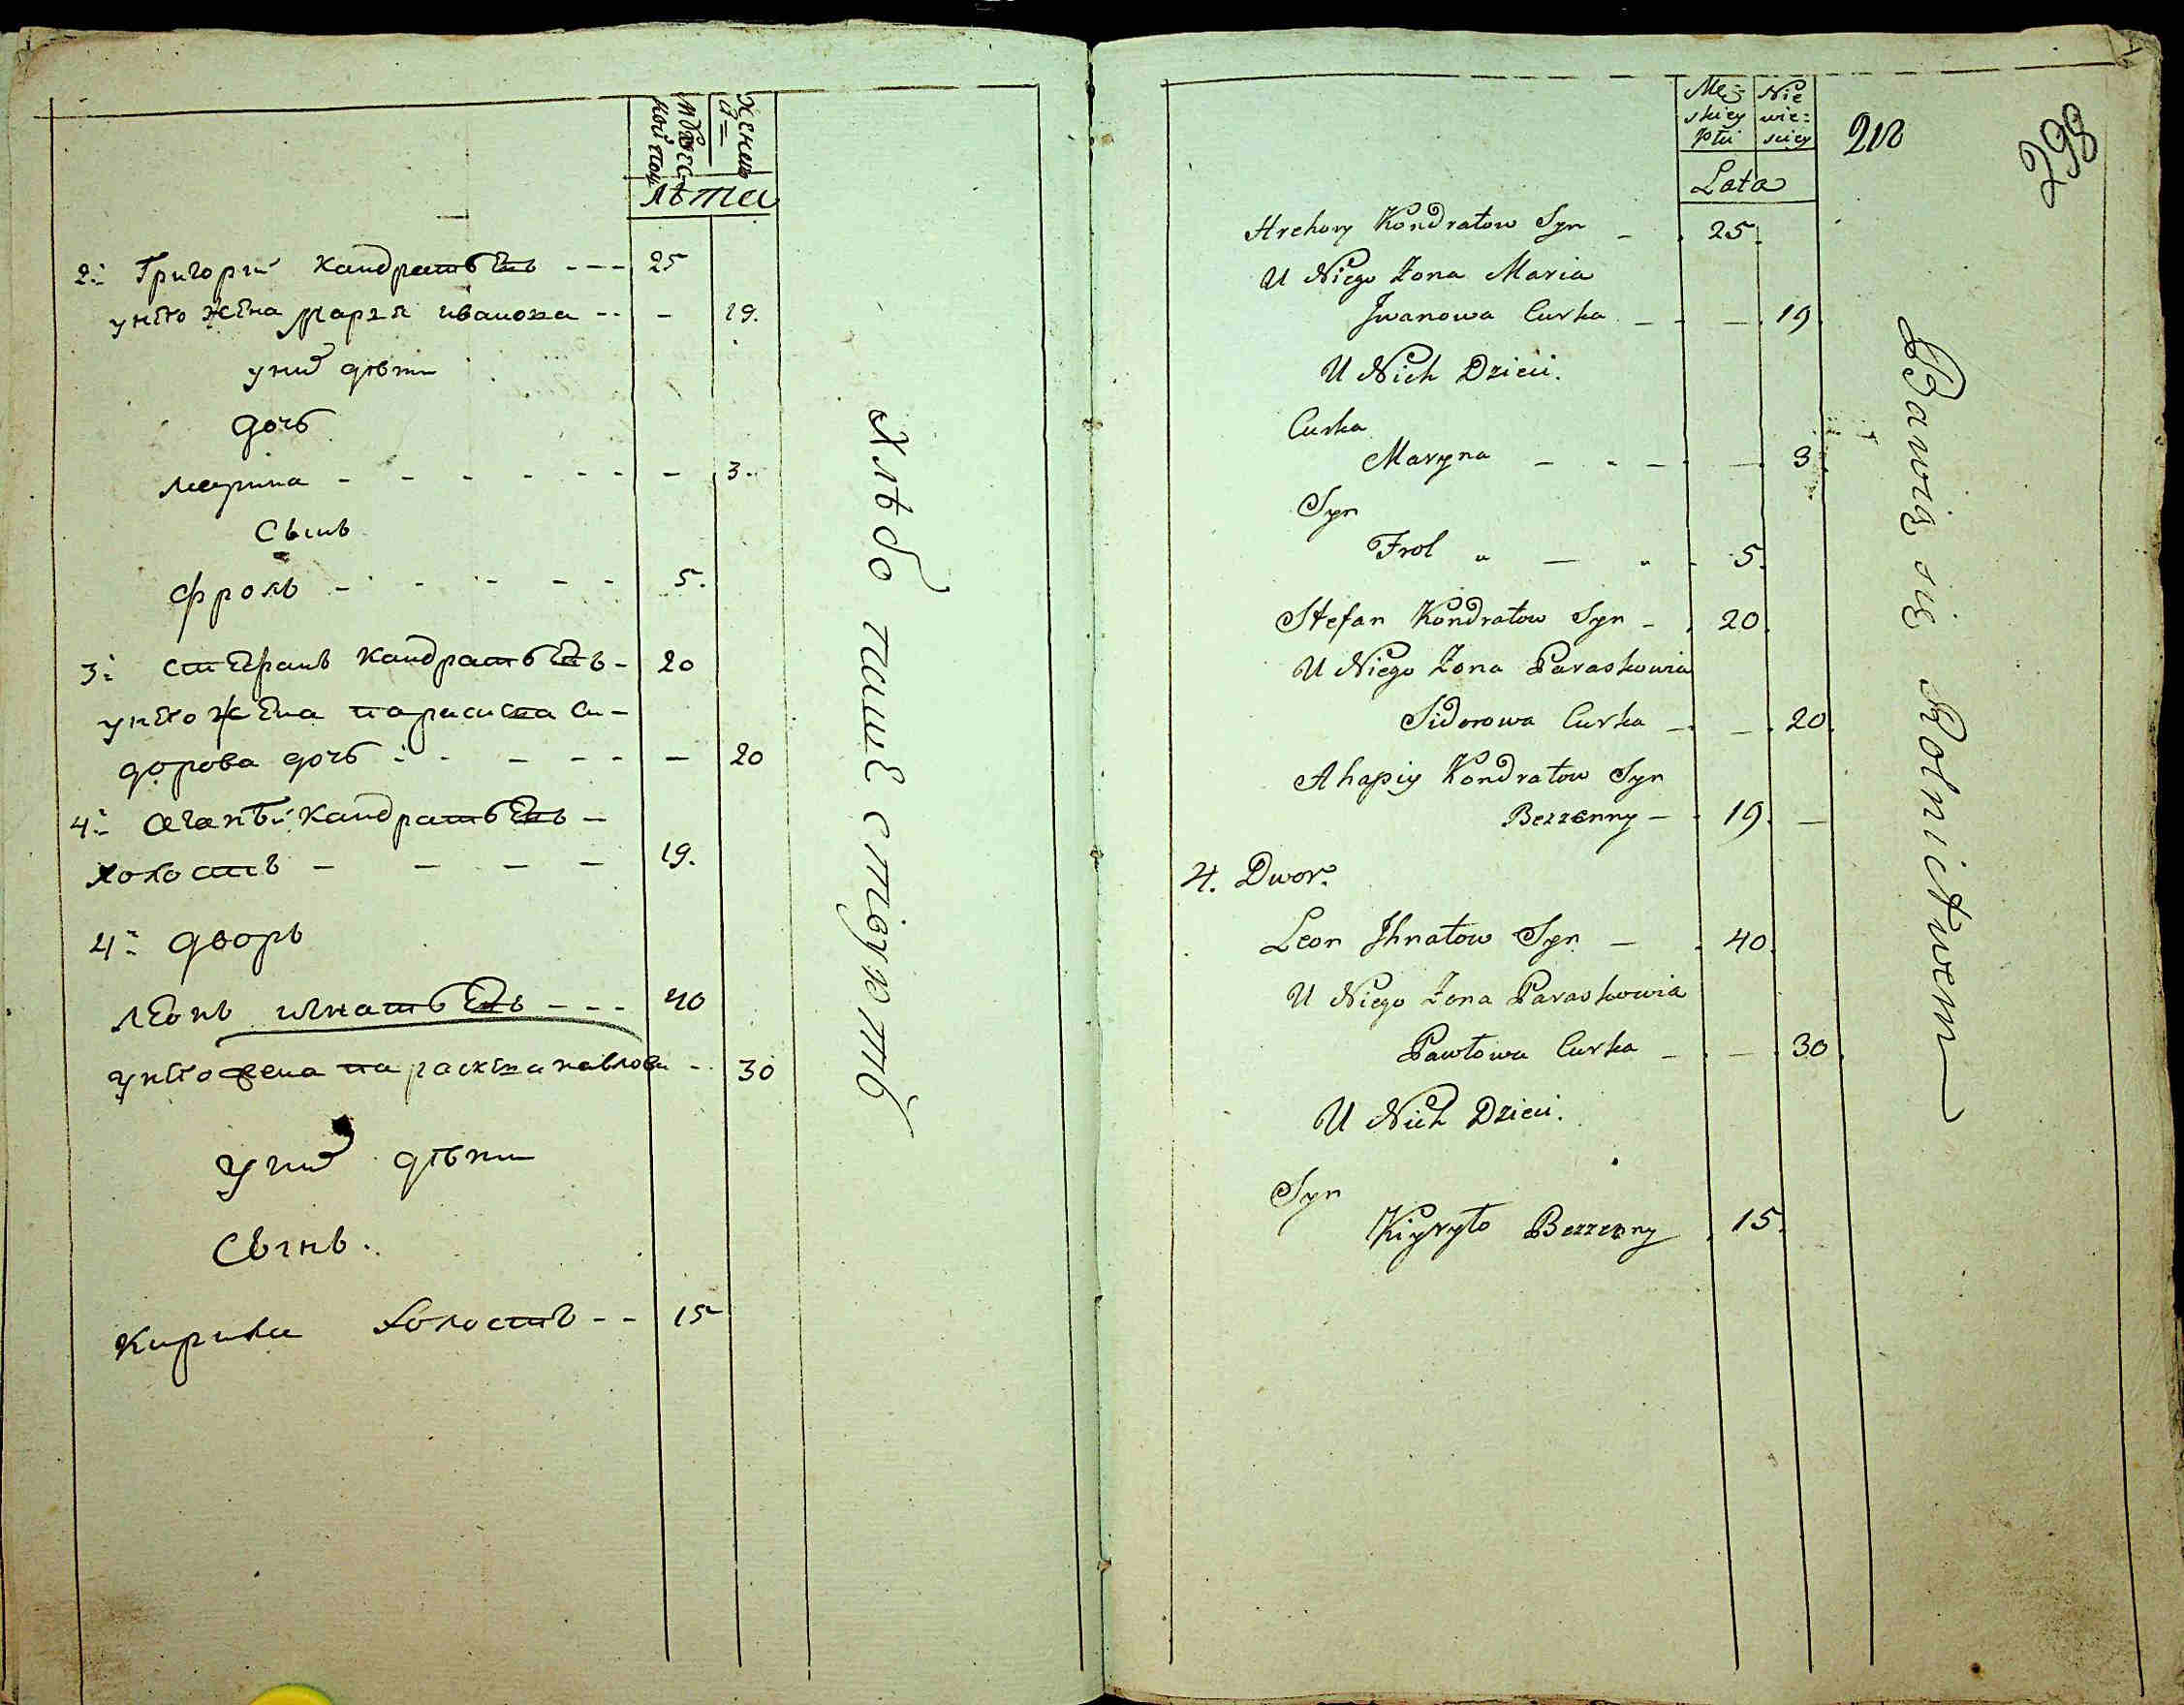 женска
мужес-
кой пол
лѣта
2. Григорий Кандратьевъ --- 25
у нево жена Марья иванова -- - 19.
у них дѣти
дочь
Марина - - - - - - - 3.
Сынъ
Фролъ - - - - - 5.
3. Стефанъ Кандратьевъ - 20
у нево жена параска си-
дорова дочь - - - - - 20
4. Агапѣй Кандратьевъ -
холостъ - - - - 19.
4. дворъ
Леонъ игнатьевъ --- 40
у нево жена параскева павлова - 30
у них дѣти
Сынъ.
Кирила холостъ -- 15
Хлѣбо пашество
Męz- Nie
skiey wie=
płci sciey
Lata
210
298
Hrehory Kondratow Syn - 25.
U Niego Zona Maria
Jwanowa Curka - - 19.
U Nich Dzieci.
Curka
Maryna - - - - 3.
Syn
Frol " - " 5.
Stefan Kondratow Syn - 20.
U Niego Zona Paraskowia
Sidorowa Curka - - 20.
Ahapiy Kondratow Syn
Bezzenny - 19. -
4. Dwor.
Leon Jhnatow Syn - 40.
U Niego Zona Paraskowia
Pawłowa Curka - - 30.
U Nich Dzieci.
Syn
Kiyryło Bezzenny 15.
Bawią się Rolnictwem